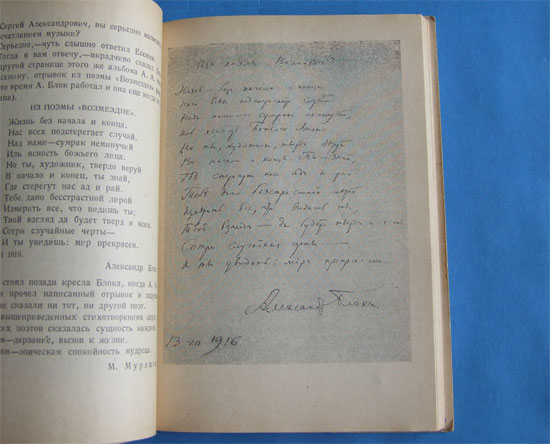 Сергей Александрович, вы серьезно
печатлением музыки?
Серьезно,—чуть слышно ответил
Тогда я вам отвечу,—вкрадчиво сказал
другой странице этого же альбома А. А.
сенину, отрывок из поэмы «Возмездие»
то время А. Блок работал и она еще
ва).
ИЗ ПОЭМЫ «ВОЗМЕЗДИЕ».
Жизнь без начала и конца.
Нас всех подстерегает случай.
Над нами—сумрак неминучей
Иль ясность божьего лица.
Но ты, художник, твердо веруй
В начало и конец, ты знай,
Где стерегут нас ад и рай.
Тебе дано бесстрастной лирой
Измерить все, что видишь ты;
Твой взгляд да будет тверд и ясен.
Сотри случайные черты—
И ты увидишь: мир прекрасен.
1916.
Александр
стоял позади кресла Блока, когда А.
и прочел написанный отрывок
не сказали ни тот, ни другой
вышеприведенных стихотворениях
их поэтов сказалась сущность
ем—дерзание, вызов к жизни.
ем—эпическая спокойность мудреца.
М.
Из поэмы Возмездие
Жизнь — без начала и конца
Нас всех подстерегает случай
Над нами — сумрак неминучей
Но ты, художник, твердо веруй
В начала и концы. Ты знай,
Где стерегут нас ад и рай
Тебе дано бесстрастной
Измерить все, что
Твой взгляд — да будет тверд и
Сотри случайные черты —
И ты увидишь: мир прекрасен.
Александр Блок
13 VII 1916